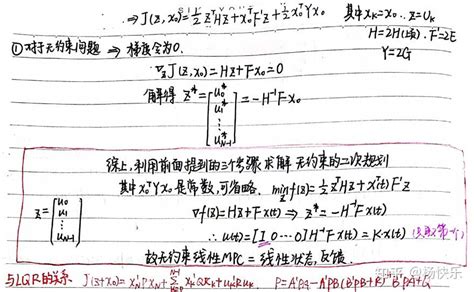 ⇒ J(z,x₀)=½z^T Hz+x₀^T F'z+½x₀^T Yx₀ 其中 x_k=x₀.. z=U_k
H=2H(上标). F'=2E
Y=2G
① 对于无约束问题 ⇒ 梯度令为0.
∇_z J(z,x₀)=Hz+Fx₀=0
解得 z*=[u₀* u₁* ⋮ u*_{N-1}]=-H⁻¹Fx₀
综上,利用前面提到的三个步骤求解 无约束的二次规划
其中x₀^T Yx₀是常数,可省略. min_z f(z)=½z^T Hz+x^T(t)F'z
z=[u₀ u₁ ⋮ u_{N-1}] ∇f(z)=Hz+Fx(t) ⇒ z*=-H⁻¹Fx(t)
∴ u(t)=[I 0…0]H⁻¹Fx(t)=K·x(t) (只取第一个)
故无约束线性MPC=线性状态反馈.
与LQR的关系. J(z,x₀)=x_N'Px_N+Σ^{N-1}x_k'Qx_k+u_k'Ru_k. P=A'PA-A'PB(B'PB+R)⁻¹B'PA+Q
知乎 @杨快乐